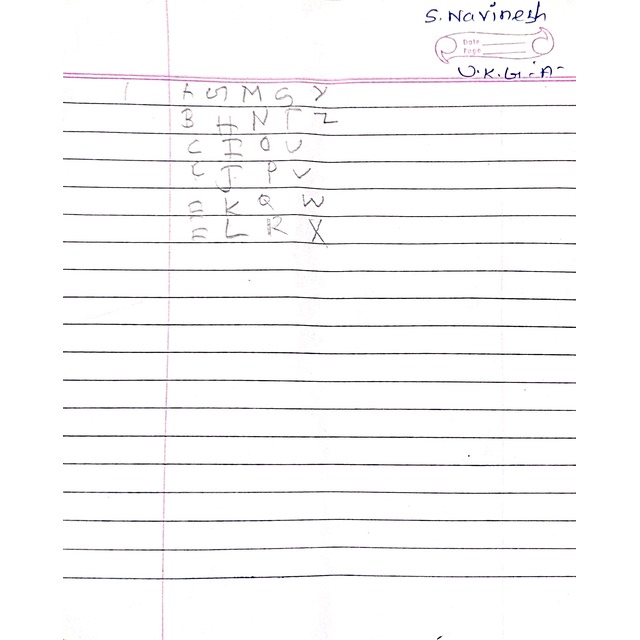 S. Navinesh
Date
Page
U.K.G-A-
1 A G M S Y
B H N T Z
C I O U
C J P V
E K Q W
F L R X